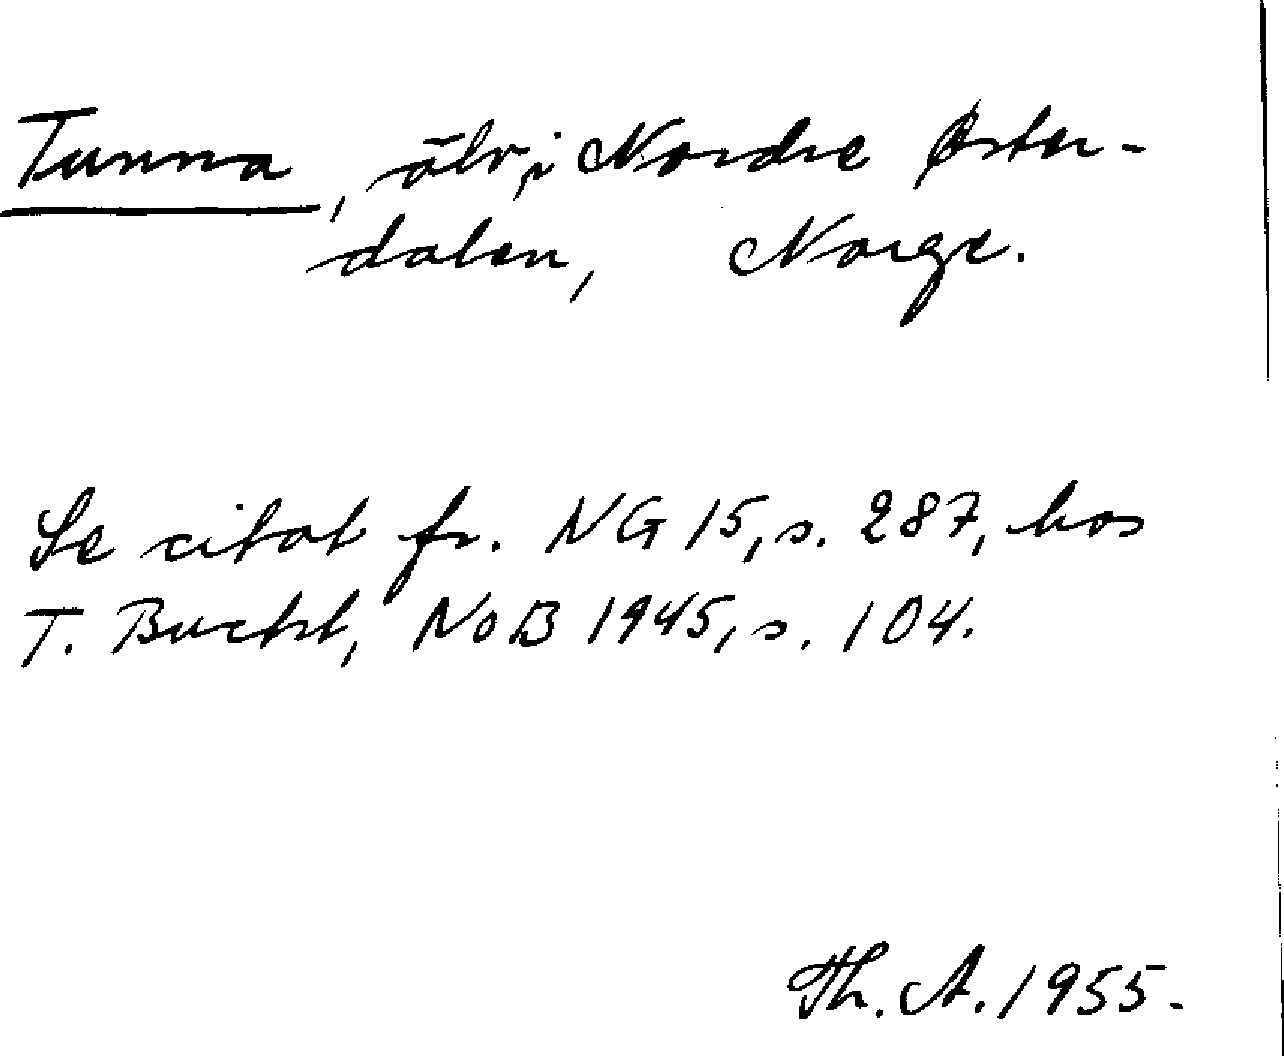 Tunna, älv, i Nordre Øster-
dalen, Norge.
Se citat fr. NG 15, s. 287, hos
T. Bucht, NoB 1945, s. 104.
Th. A. 1955.